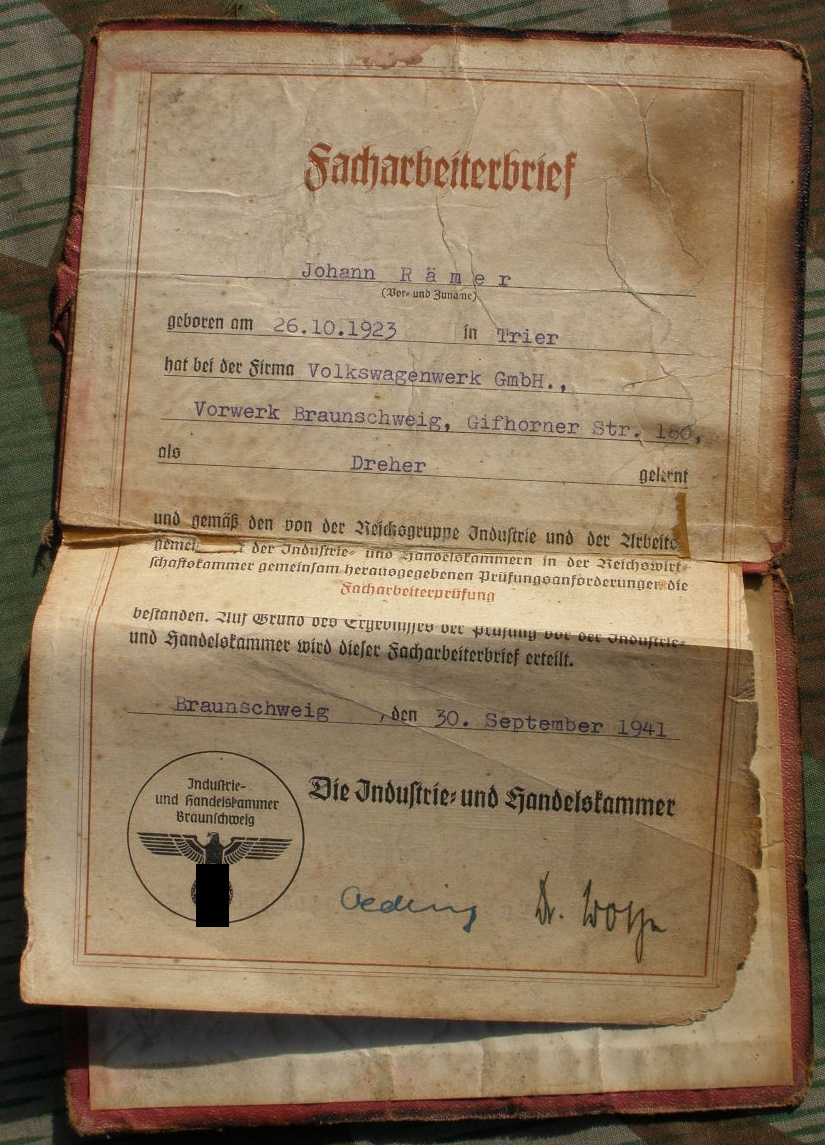 Facharbeiterbrief
Johann Rämer
(Vor- und Zuname)
geboren am 26.10.1923 in Trier
hat bei der Firma Volkswagenwerk GmbH.,
Vorwerk Braunschweig, Gifhorner Str.
als Dreher gelernt
und gemäß den von der Reichsgruppe Industrie und der Arbeits
gemei der Industrie- und Handelskammern in der Reichswirt-
schaftskammer gemeinsam herausgegebenen Prüfungsanforderungen die
Facharbeiterprüfung
bestanden. Auf Grund des Ergebnisses der Prüfung vor der Industrie-
und Handelskammer wird dieser Facharbeiterbrief erteilt.
Braunschweig, den 30. September 1941
Industrie-
und Handelskammer
Braunschweig
Die Industrie- und Handelskammer
Oeding Dr.